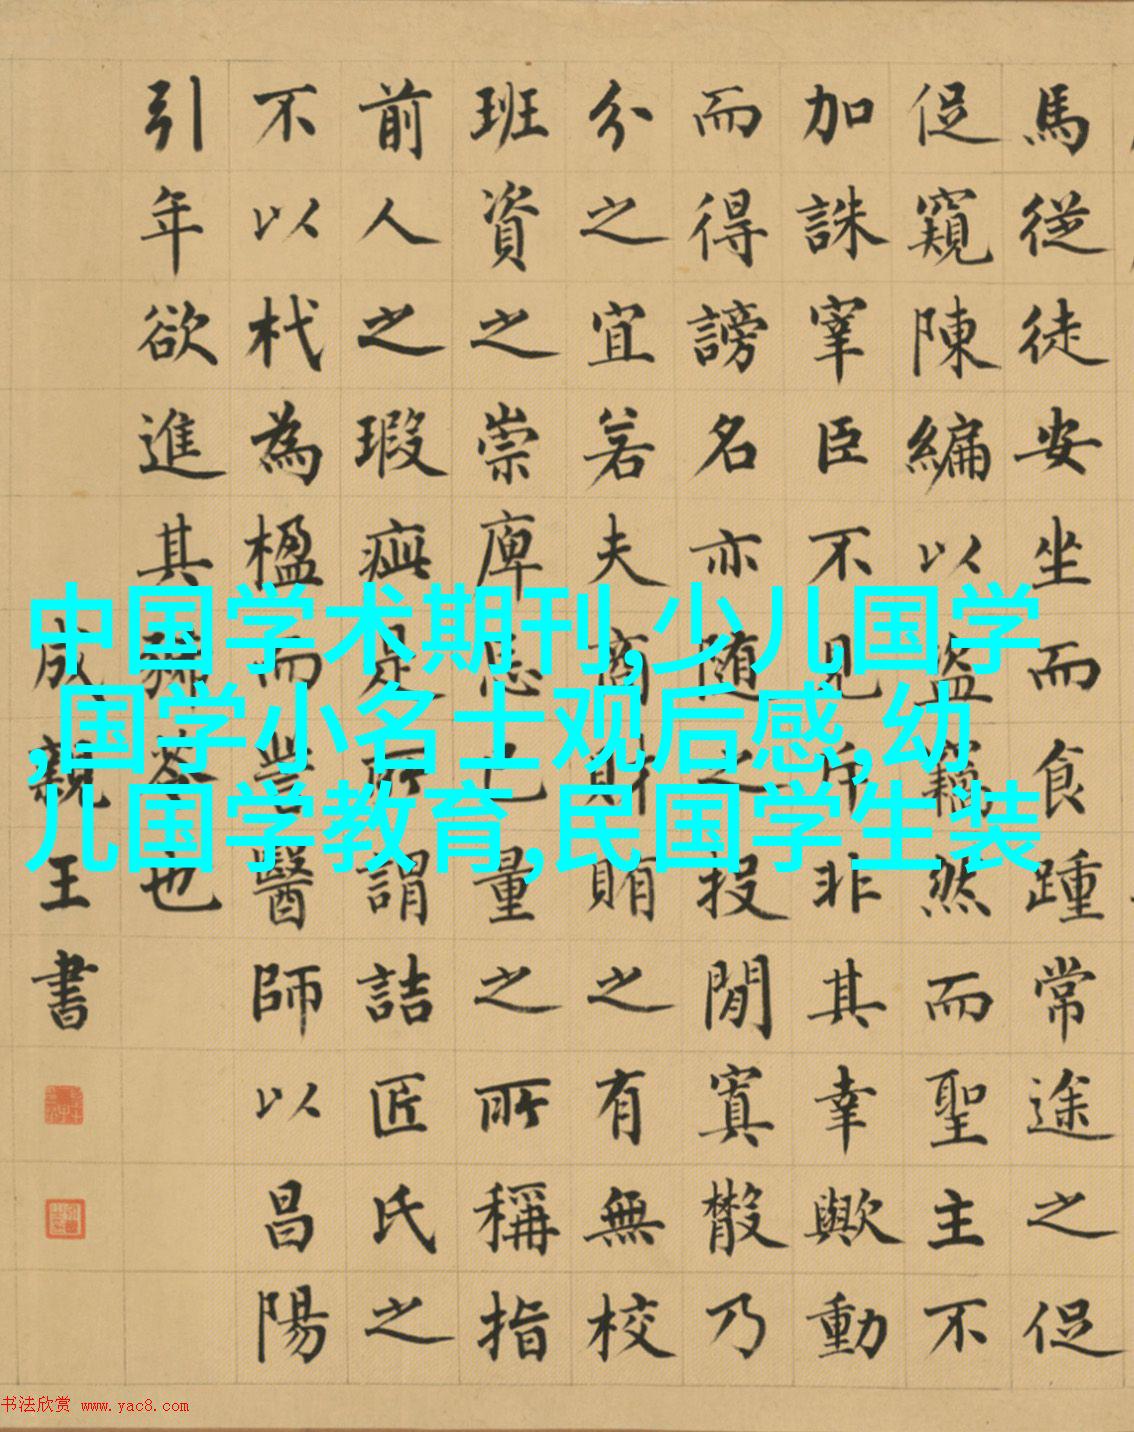 馬從徒安坐而食踵常途之促
促窺陳編以盜竊然而聖主不
加誅宰臣不見斥非其幸歟動
而得謗名亦随之投閒寘散乃
分之宜若夫商財賄之有無校
班資之崇庳忘己量之所稱指
前人之瑕疵是所謂詰匠氏之
不以杙為楹而訾醫師以昌陽
引年欲進其豨苓也
成親王書
中国学术期刊,少儿国学
,国学小名士观后感,幼
儿国学教育,民国学生装
书法欣赏 www.yac8.com